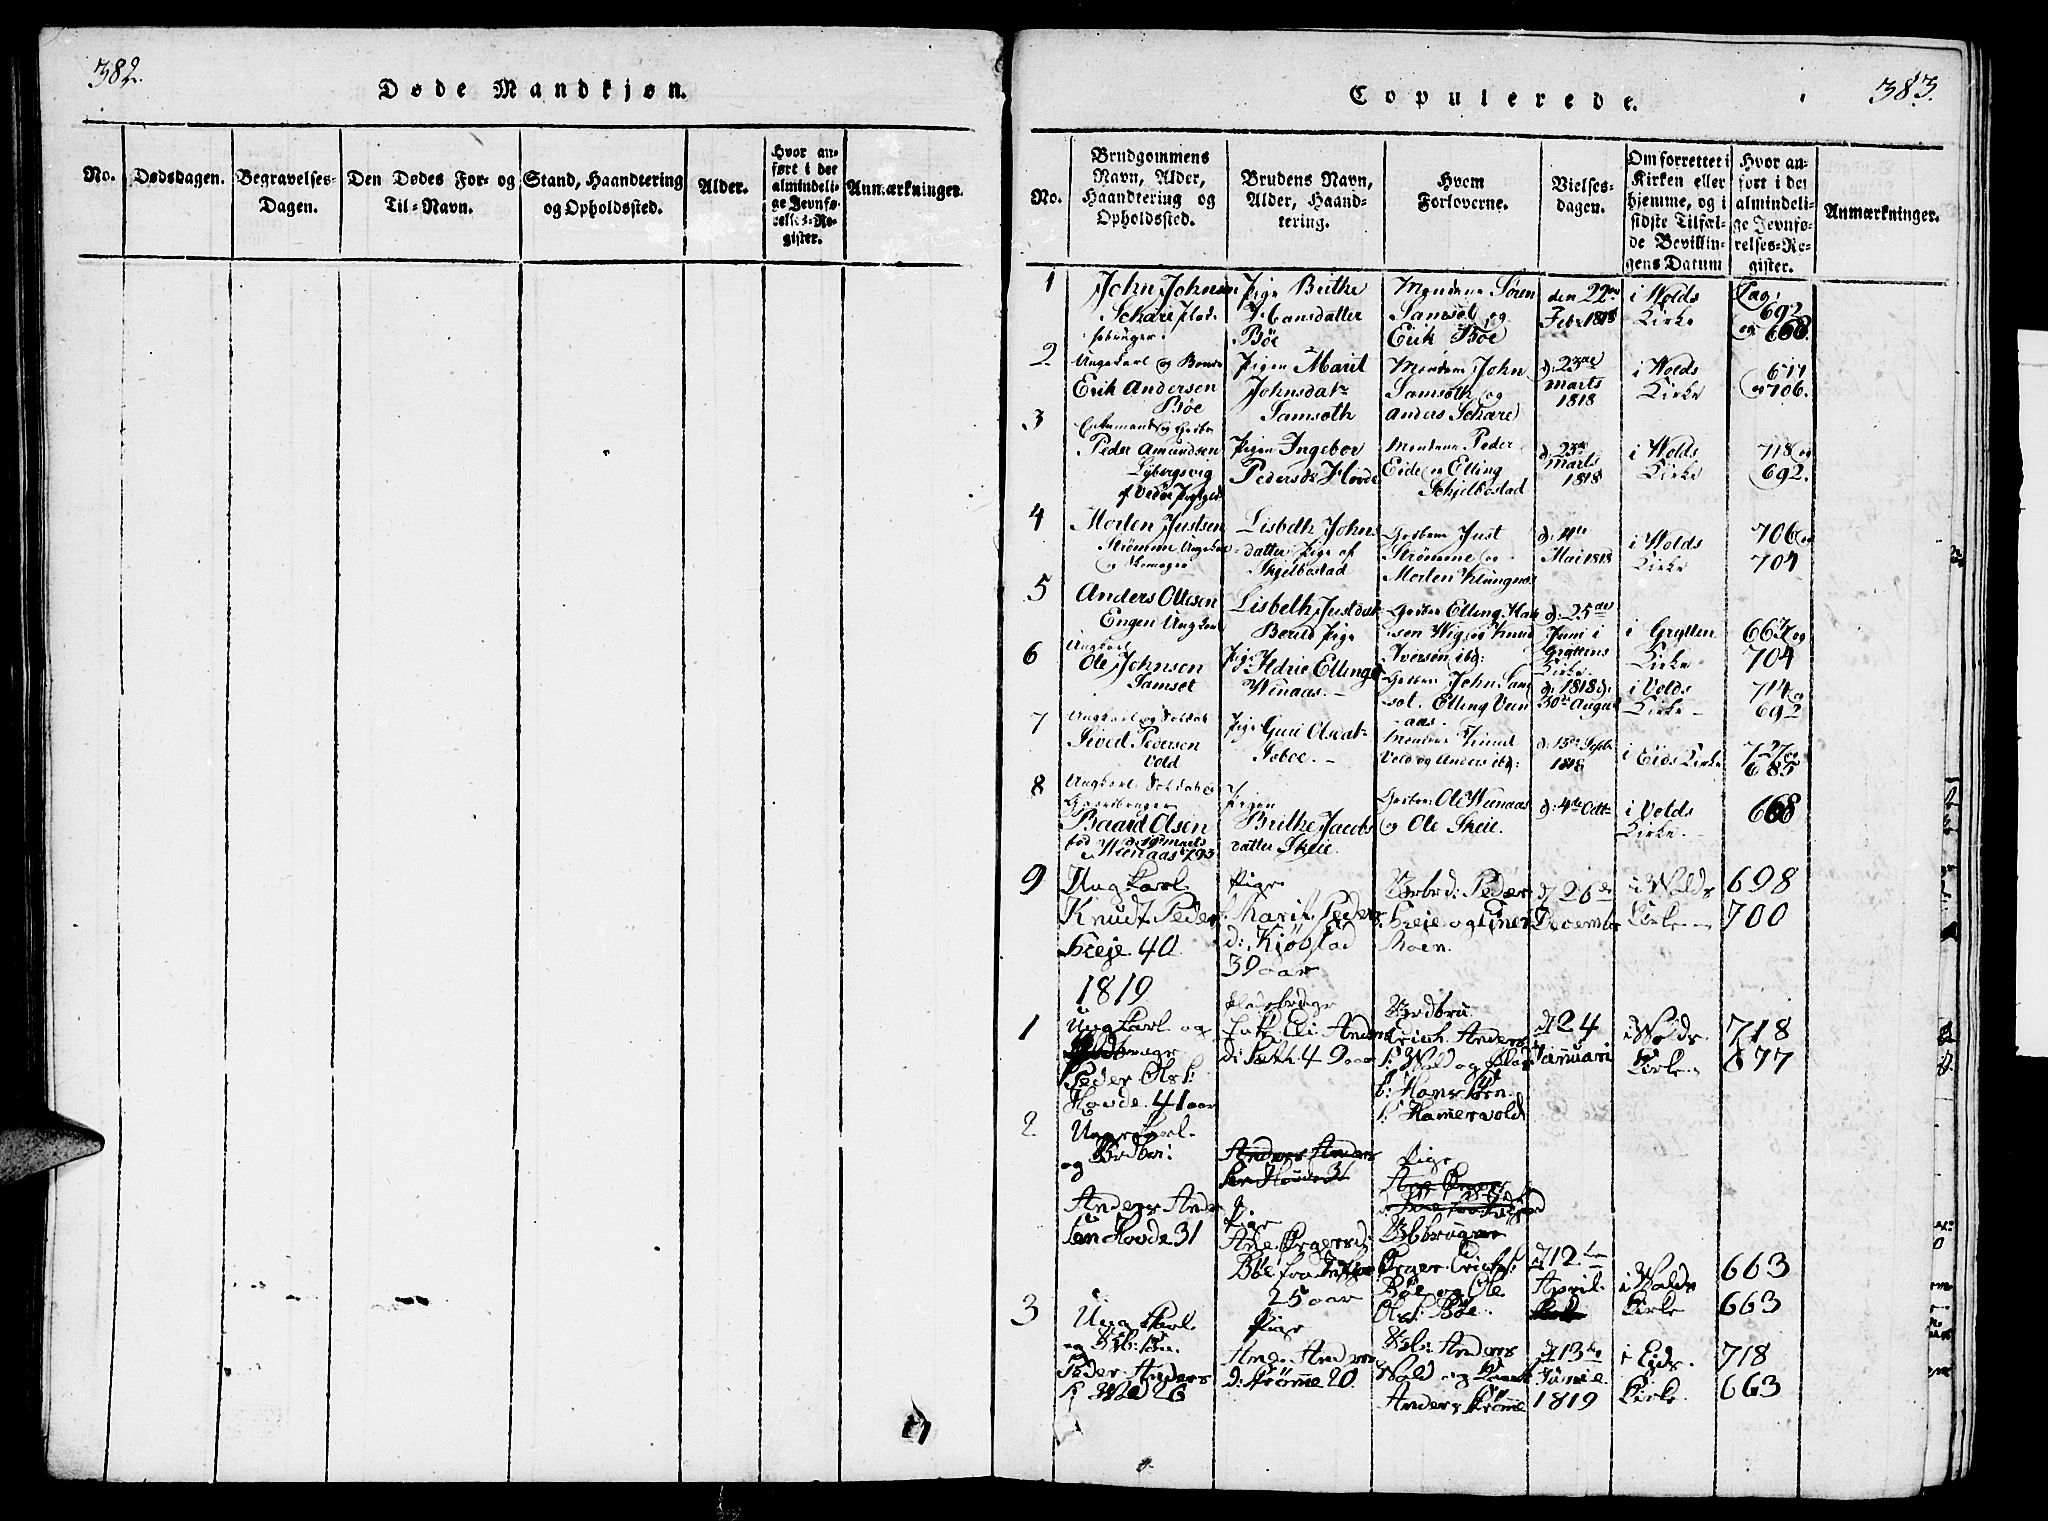 382.
Døde Mandkjøn.
No.
Dødsdagen.
Begravelses-
Dagen.
Den Dødes For- og
Til-Navn.
Stand, Haandtering
og Opholdssted.
Alder.
Hvor an-
ført i det
almindeli-
ge Jevnfø-
relses-Re-
gister.
Anmærkninger.
Copulerede.
383.
No.
Brudgommens
Navn, Alder,
Haandtering og
Opholdssted.
Brudens Navn,
Alder, Haand-
tering.
Hvem
Forloverne.
Vielses-
dagen.
Om forrettet i
Kirken eller
hjemme, og i
sidste Tilfæl-
de Bevillin-
gens Datum
Hvor an-
ført i det
almindeli-
ge Jevnfø-
relses-Re-
gister.
Anmærkninger.
1
John Johnsen
Schare
Pige Brithe
Hansdatter
Bøe
Mændene Søren
Samsøt og
Erik Bøe
den 22de
Febr 1818
i Wolds
Kirke
Pag:
692
og 668.
2
Ungekarl og Bonde
Erik Andersen
Bøe
Pigen Marit
Johnsdatr
Samsøth
Mændene John
Samsøth og
Anders Schare
d: 23de
Marts
1818
i Wolds
Kirke
og 706.
3
Enkemand og
Peder Amundsen
Pigen Ingebor
Pedersdr Hovde
Mændene Peder
Eide og Elling
Schjelbostad
d: 23de
Marts
1818
i Wolds
Kirke
718 og
692.
4
Morten Justsen
Strømme Ungekarl
og Skomager
Lisbeth Johns
datter Pige af
Skjelbostad
Just
Strømme og
Morten Klungnes
d: 4de
Mai 1818
i Wolds
Kirke
706 og
704
5
Anders Ottesen
Engen Ungkarl
Lisbeth Justdatr
Pige
Elling Han
sen Wig og Knud
Iversen ibd:
d: 25de
Juni i
Gryttens
Kirke
i Grytten
Kirke
663 og
704
6
Ungkarl
Ole Johnsen
Samset
Pige Ildrie Ellings
Wenaas.
John Sam
set. Elling Ven
aas.
1818 d:
30te August
i Volds
Kirke
714 og
692
7
Ungkarl og Soldat
Sived Pedersen
Vold
Pige Guri Olsdat-
Mændene Knud
Vold og Anders ibd:
d: 13de Septb
1818
i Eids Kirke
727 og
685
8
Ungkarl Soldat og
Gaardbruger
Baard Olsen
Wenaas
Pigen
Brithe Jacobs
datter Skeie.
Ole Wenaas
og Ole Skeie.
d: 4de Octb
i Volds
Kirke.
668
9
Ung Karl
Knudt Peder
Skeje 40
Pige
Marit Peders
d: Kiøbstad
39 aar
Peder
Skeie og Einer
Moen.
d 26de
Decembr
i Wolds
Kirke
698
700
1819
1
Ung Karl og
Peder Ols:
Hovde 41 aar
Enke Eli Anders
d: Sæth 49 aar
Erich Anders
s: Wold og
Hans Sten
s: Hamerwold
d 24
Januari
i Wolds
Kirke
718
677
2
Unge Karl
og
Anders Ander
sen Hovde 31
Anders Anders
sen Hovde 31
Pige
Ane
d:
Bøe fra
25 aar
Pige
Erichs:
Bøe og Ole
Ols: Bøe.
d 12te
April
i Wolds
Kirke
663
663
3
Ung Karl
og
Peder Anders
s: Wold 26
Pige
Ane Anders
d: Strømme 20
Anders
Wold og
Anders Strømme
d 13de
Junie
1819
i Eids
Kirke.
718
663